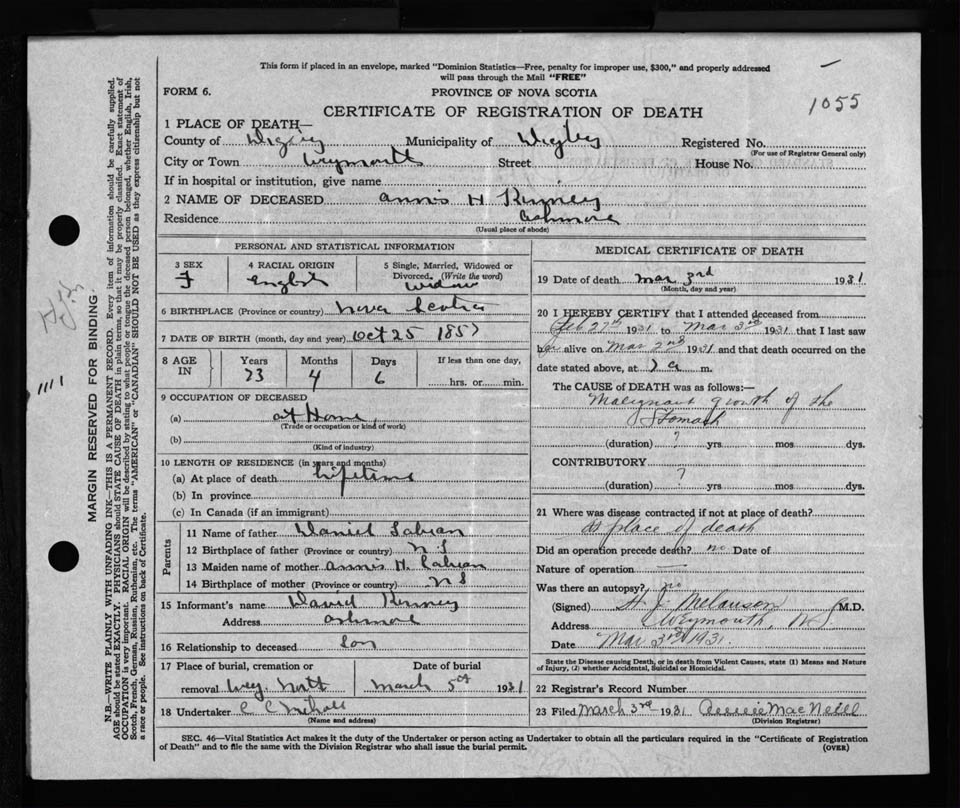 This form if placed in an envelope, marked "Dominion Statistics—Free, penalty for improper use, $300," and properly addressed
will pass through the Mail "FREE"
FORM 6.
PROVINCE OF NOVA SCOTIA
1055
CERTIFICATE OF REGISTRATION OF DEATH
1 PLACE OF DEATH—
County of Digby Municipality of Digby Registered No.
(For use of Registrar General only)
City or Town Weymouth Street House No.
If in hospital or institution, give name
2 NAME OF DECEASED Annis H Kinney
Residence Ashmore
(Usual place of abode)
PERSONAL AND STATISTICAL INFORMATION
3 SEX 4 RACIAL ORIGIN 5 Single, Married, Widowed or
Divorced. (Write the word)
F English Widow
6 BIRTHPLACE (Province or country) Nova Scotia
7 DATE OF BIRTH (month, day and year) Oct 25 1857
8 AGE IN Years Months Days If less than one day,
73 4 6 hrs. or min.
9 OCCUPATION OF DECEASED
(a) at Home
(Trade or occupation or kind of work)
(b)
(Kind of industry)
10 LENGTH OF RESIDENCE (in years and months)
(a) At place of death lifetime
(b) In province
(c) In Canada (if an immigrant)
Parents
11 Name of father Daniel Sabean
12 Birthplace of father (Province or country) N S
13 Maiden name of mother Annis H. Sabean
14 Birthplace of mother (Province or country) N S
15 Informant's name David Kinney
Address Ashmore
16 Relationship to deceased Son
17 Place of burial, cremation or Date of burial
removal Wey. North March 5th 1931
18 Undertaker C C
(Name and address)
MEDICAL CERTIFICATE OF DEATH
19 Date of death Mar 3rd 1931
(Month, day and year)
20 I HEREBY CERTIFY that I attended deceased from
Feb 27th 1931 to Mar 3rd 1931 that I last saw
her alive on Mar 2nd 1931 and that death occurred on the
date stated above, at 7 a m.
The CAUSE OF DEATH was as follows:—
Malignant growth of the
Stomach
(duration) ? yrs mos dys.
CONTRIBUTORY
(duration) ? yrs mos dys.
21 Where was disease contracted if not at place of death?
At place of death
Did an operation precede death? no Date of
Nature of operation —
Was there an autopsy? no
(Signed) H. J. Melanson M.D.
Address Weymouth, N.S.
Date Mar 3rd 1931.
State the Disease causing Death, or in death from Violent Causes, state (1) Means and Nature
of Injury, (2) whether Accidental, Suicidal or Homicidal.
22 Registrar's Record Number
23 Filed March 3rd 1931 MacNeill
(Division Registrar)
SEC. 46—Vital Statistics Act makes it the duty of the Undertaker or person acting as Undertaker to obtain all the particulars required in the "Certificate of Registration
of Death" and to file the same with the Division Registrar who shall issue the burial permit.
(OVER)
MARGIN RESERVED FOR BINDING.
N.B.—WRITE PLAINLY, WITH UNFADING INK—THIS IS A PERMANENT RECORD. Every item of information should be carefully supplied.
AGE should be stated EXACTLY. PHYSICIANS should STATE CAUSE OF DEATH in plain terms, so that it may be properly classified. Exact statement of
OCCUPATION is very important. RACIAL ORIGIN will be described by stating to what people or tongue the deceased person belonged, whether English, Irish,
Scotch, French, German, Russian, Ruthenian, etc. The terms "AMERICAN" or "CANADIAN" SHOULD NOT BE USED as they express citizenship but not
a race or people. See instructions on back of Certificate.